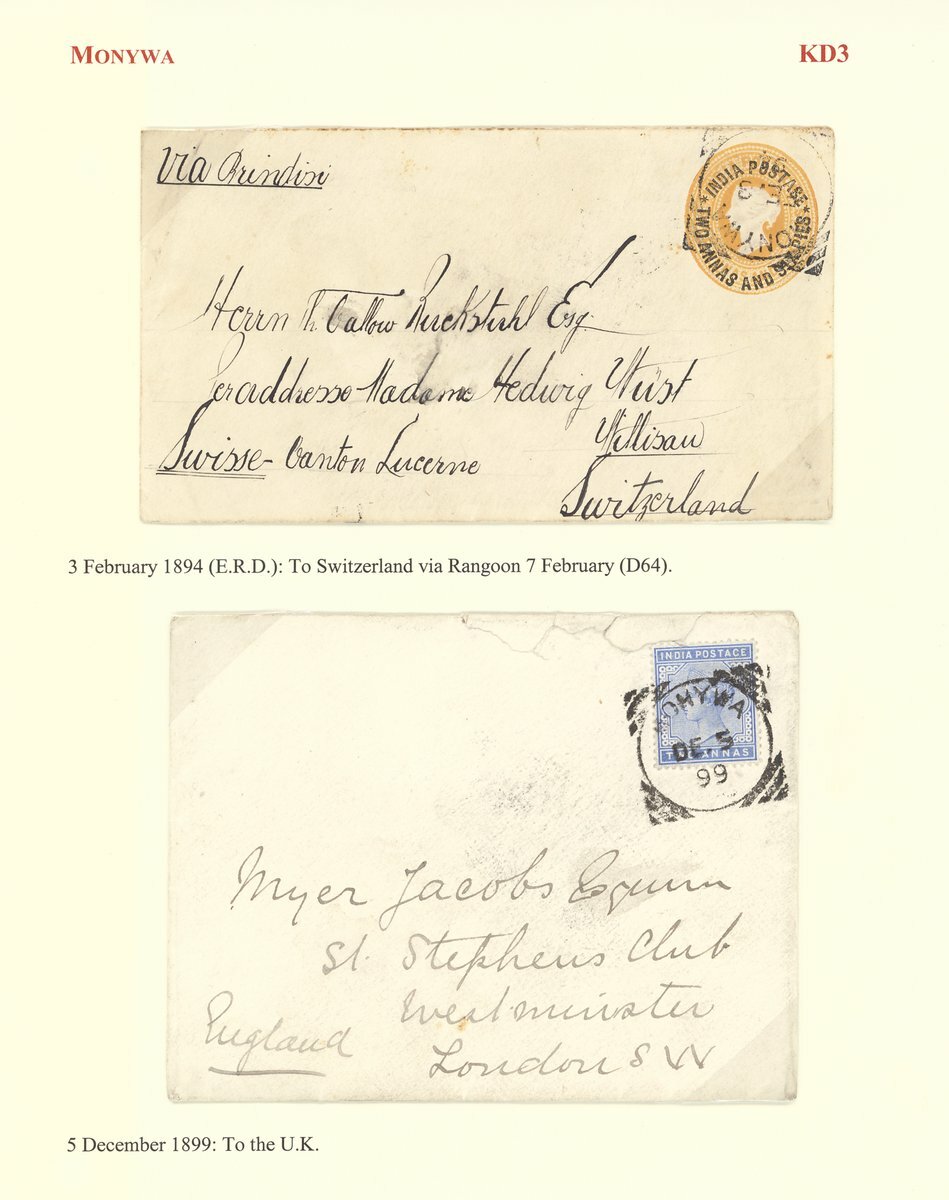 MONYWA
KD3
Via Brindisi
INDIA POSTAGE
TWO ANNAS AND SIX PIES
Herrn Th. Ruckstuhl Esq.
Peraddresse Madame Hedwig Wüst
Willisau
Swisse - Canton Lucerne
Switzerland
3 February 1894 (E.R.D.): To Switzerland via Rangoon 7 February (D64).
INDIA POSTAGE
TWO ANNAS
MONYWA
DE. 5
99
Myer Jacobs Esquire
St. Stephens Club
Westminster
London S W
England
5 December 1899: To the U.K.